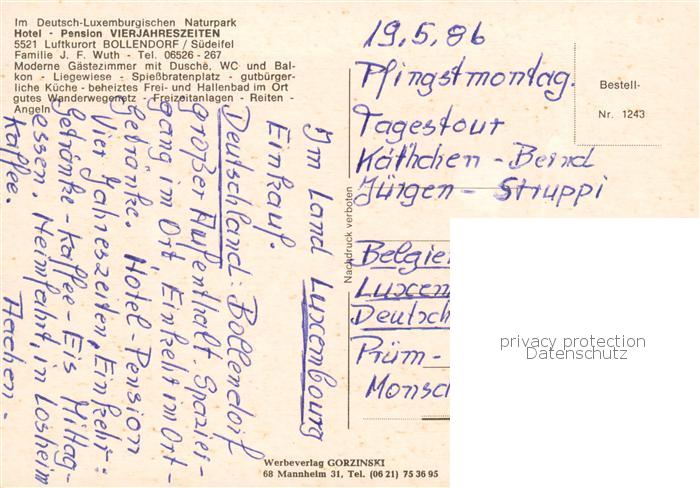 Im Deutsch-Luxemburgischen Naturpark
Hotel - Pension VIERJAHRESZEITEN
5521 Luftkurort BOLLENDORF / Südeifel
Familie J. F. Wuth - Tel. 06526 - 267
Moderne Gästezimmer mit Dusche, WC und Bal-
kon - Liegewiese - Spießbratenplatz - gutbürger-
liche Küche - beheiztes Frei- und Hallenbad im Ort
gutes Wanderwegenetz - Freizeitanlagen - Reiten -
Angeln
19.5.86
Pfingstmontag.
Tagestour
Käthchen - Bernd
Jürgen - Struppi
Belgie
Luxem
Deutsch
Prüm -
Monsc
Bestell-
Nr. 1243
Im Land Luxembourg
Einkauf.
Deutschland: Bollendorf
großer Aufenthalt. Spazier-
gang im Ort, Einkehr im Ort -
Getränke. Hotel - Pension
Vier Jahreszeiten, Einkehr:
Getränke - Kaffee - Eis Mittag-
essen. Heimfahrt, in Losheim
Kaffee. Aachen.
Nachdruck verboten
Werbeverlag GORZINSKI
68 Mannheim 31, Tel. (06 21) 75 36 95
privacy protection
Datenschutz